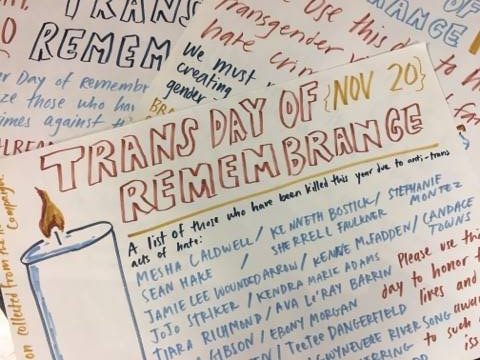 TRANS
REMEM
Transgender
hate crim
we must
creating
gender
Use this d
OF
BRANCE
r Day of Remembr
ze those who ha
imes against th
TRANS DAY OF {NOV 20}
REMEMBRANCE
A list of those who have been killed this year due to anti-trans
acts of hate:
MESHA CALDWELL / KENNETH BOSTICK / STEPHANIE MONTEZ
SEAN HAKE / SHERRELL FAULKNER
JAMIE LEE WOUNDED ARROW / KENNE McFADDEN / CANDACE TOWNS
JOJO STRIKER / KENDRA MARIE ADAMS
TIARA RICHMOND / AVA LE'RAY BARRIN
GIBSON / EBONY MORGAN
TEETEE DANGERFIELD
GWYNEVERE RIVER SONG
ERRING
Please use this
day to honor t
lives and
awar
to such
iss
on collected from the
Campaign